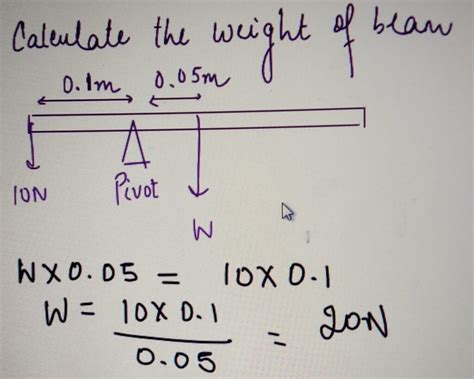 Calculate the weight of beam
0.1m 0.05m
10N Pivot
W
W X 0.05 = 10 X 0.1
W = 10 X 0.1
0.05
= 20N